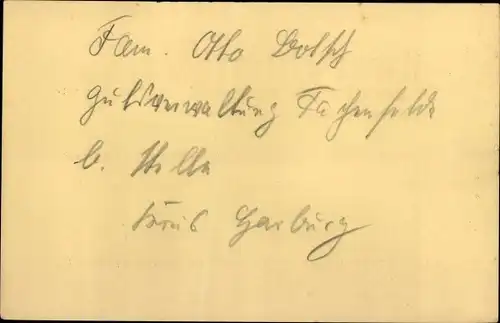 Fam. Otto Dolsch
Gutsverwaltung Tachenfelde
b. Stelle
Kreis Harburg